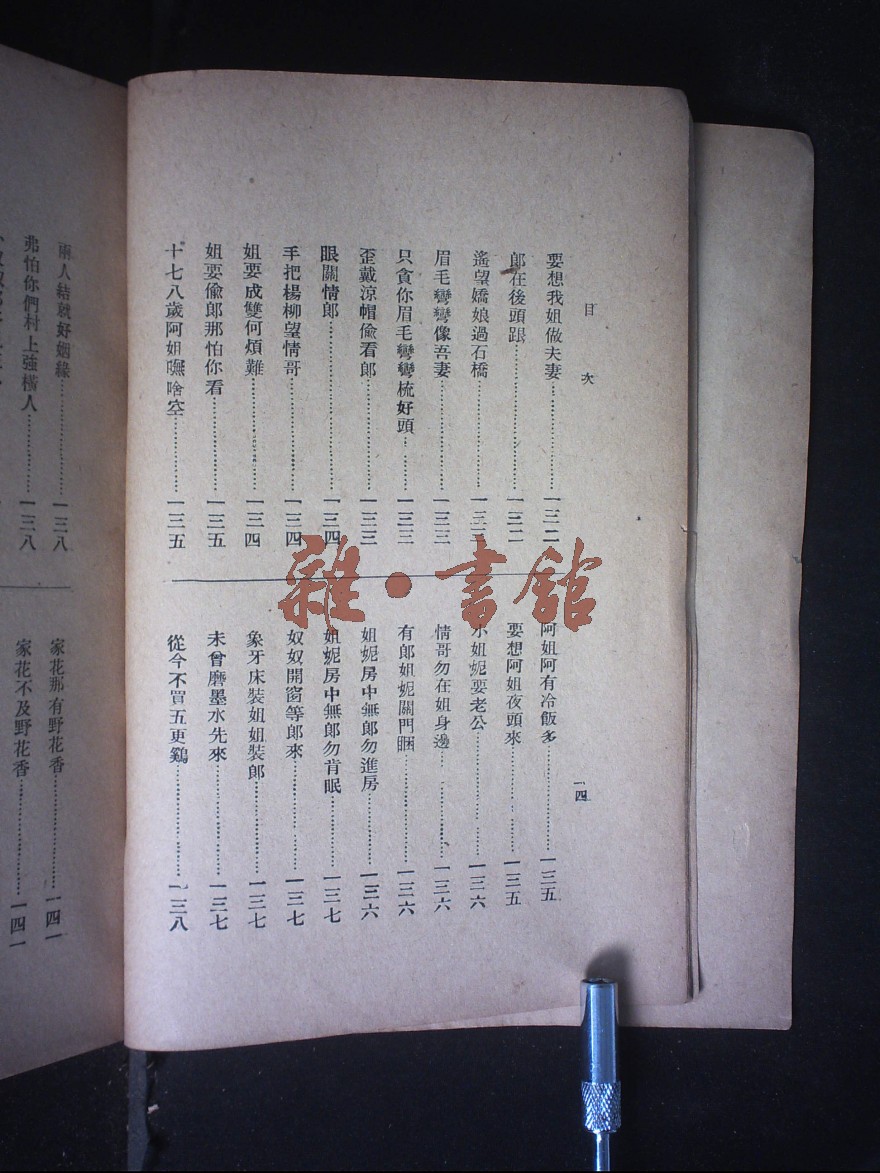 目次
要想我姐做夫妻……一三二
郎在後頭跟……一三二
遙望嬌娘過石橋……一三三
眉毛彎彎像吾妻……一三三
只貪你眉毛彎彎梳好頭……一三三
歪戴涼帽偸看郎……一三三
眼關情郎……一三四
手把楊柳望情哥……一三四
姐要成雙何煩難……一三四
姐要偸郎那怕你看……一三五
十七八歲阿姐嘸啥空……一三五
阿姐阿有冷飯多……一三五
要想阿姐夜頭來……一三五
小姐妮要老公……一三六
情哥勿在姐身邊……一三六
有郎姐妮關門睏……一三六
姐妮房中無郎勿進房……一三六
姐妮房中無郎勿肯眠……一三七
奴奴開窗等郎來……一三七
象牙床裝姐姐裝郎……一三七
未曾磨墨水先來……一三七
從今不買五更鷄……一三八
一四
兩人結就好姻緣……一三八
弗怕你們村上強橫人……一三八
家花那有野花香……一四一
家花不及野花香……一四一
雜·書館